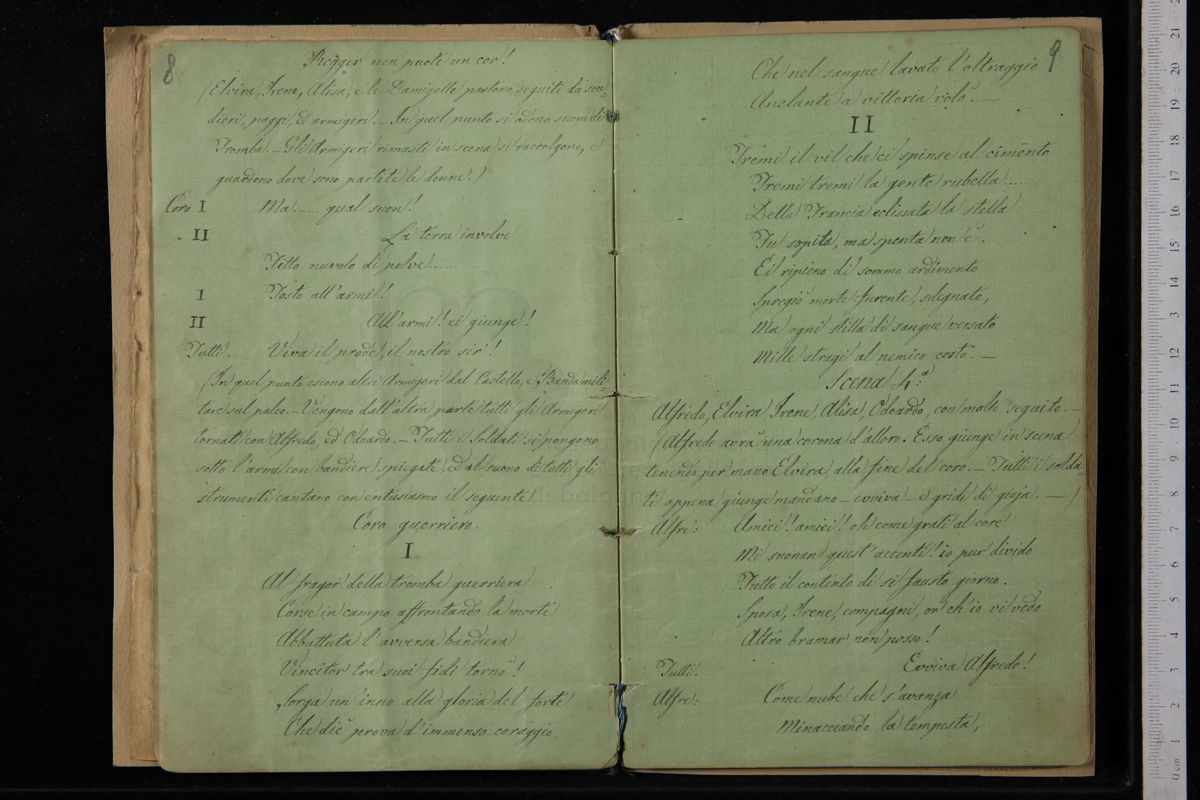 8
Regger non puote un cor!
(Elvira, Irene, Alisa, e le Damigelle partono seguiti da scu-
dieri, paggi, ed armigeri. - In quel punto si odono suoni di
Tromba. - Gli Armigeri rimasti in scena si raccolgono, e
guardono dove sono partite le donne.)
Coro I Ma..... qual suon!
II La terra involve
Fitto nuvolo di polve.....
I Tosto all'armi!
II All'armi! ei giunge!
Tutti. Viva il prode, il nostro sir!
(In quel punto escono altri Armigeri dal Castello, e Banda mili-
tare sul palco. - Vengono dall'altra parte tutti gli Armigeri
tornati con Alfredo, ed Odoardo. - Tutti i Soldati si pongono
sotto l'armi con bandiere spiegate, ed al suono di tutti gli
strumenti cantano con entusiasmo il seguente)
Coro guerriero.
I
Al fragor della tromba guerriera
Corse in campo affrontando la morte
Abbattuta l'avversa bandiera
Vincitor tra suoi fidi tornò!
Sorga un'inno alla gloria del forte
Che diè prova d'immenso coraggio,
9
Che nel sangue lavato l'oltraggio
Anelante a vittoria volò. -
II
Tremi il vil che ci spinse al cimento
Tremi tremi la gente rubella.....
Della Francia eclissata la stella
Fu sopita, ma spenta non è.
Ei ripieno di sommo ardimento
Spregiò morte furente, sdegnato,
Ma ogni stilla di sangue versato
Mille stragi al nemico costò. -
Scena 4.a
Alfredo, Elvira, Irene, Alisa, Odoardo, con molto seguito. -
(Alfredo avrà una corona d'alloro. Esso giunge in scena
tenendo per mano Elvira, alla fine del coro. - Tutti i solda-
ti appena giunge mandano - evviva - e gridi di gioja. -)
Alfre: Amici! amici! oh come grati al core
Mi suonan quest'accenti! io pur divido
Tutto il contento di si fausto giorno.
Sposa, Irene, compagni, or ch'io vi vedo
Altro bramar non posso!
Tutti. Evviva Alfredo!
Alfre: Come nube che s'avanza
Minacciando la tempesta,